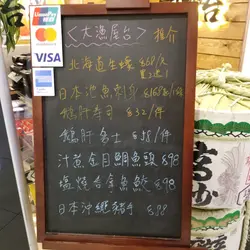 UnionPay
VISA
<大漁屋台> 推介
北海道生蠔 $68/
日本池魚刺 $168/
鵝肝壽司 $32/件
鵝肝多士 $58/件
汁煮金目鯛魚頭 $98
塩燒 魚鮫 $98
日本沖繩豬手 $98